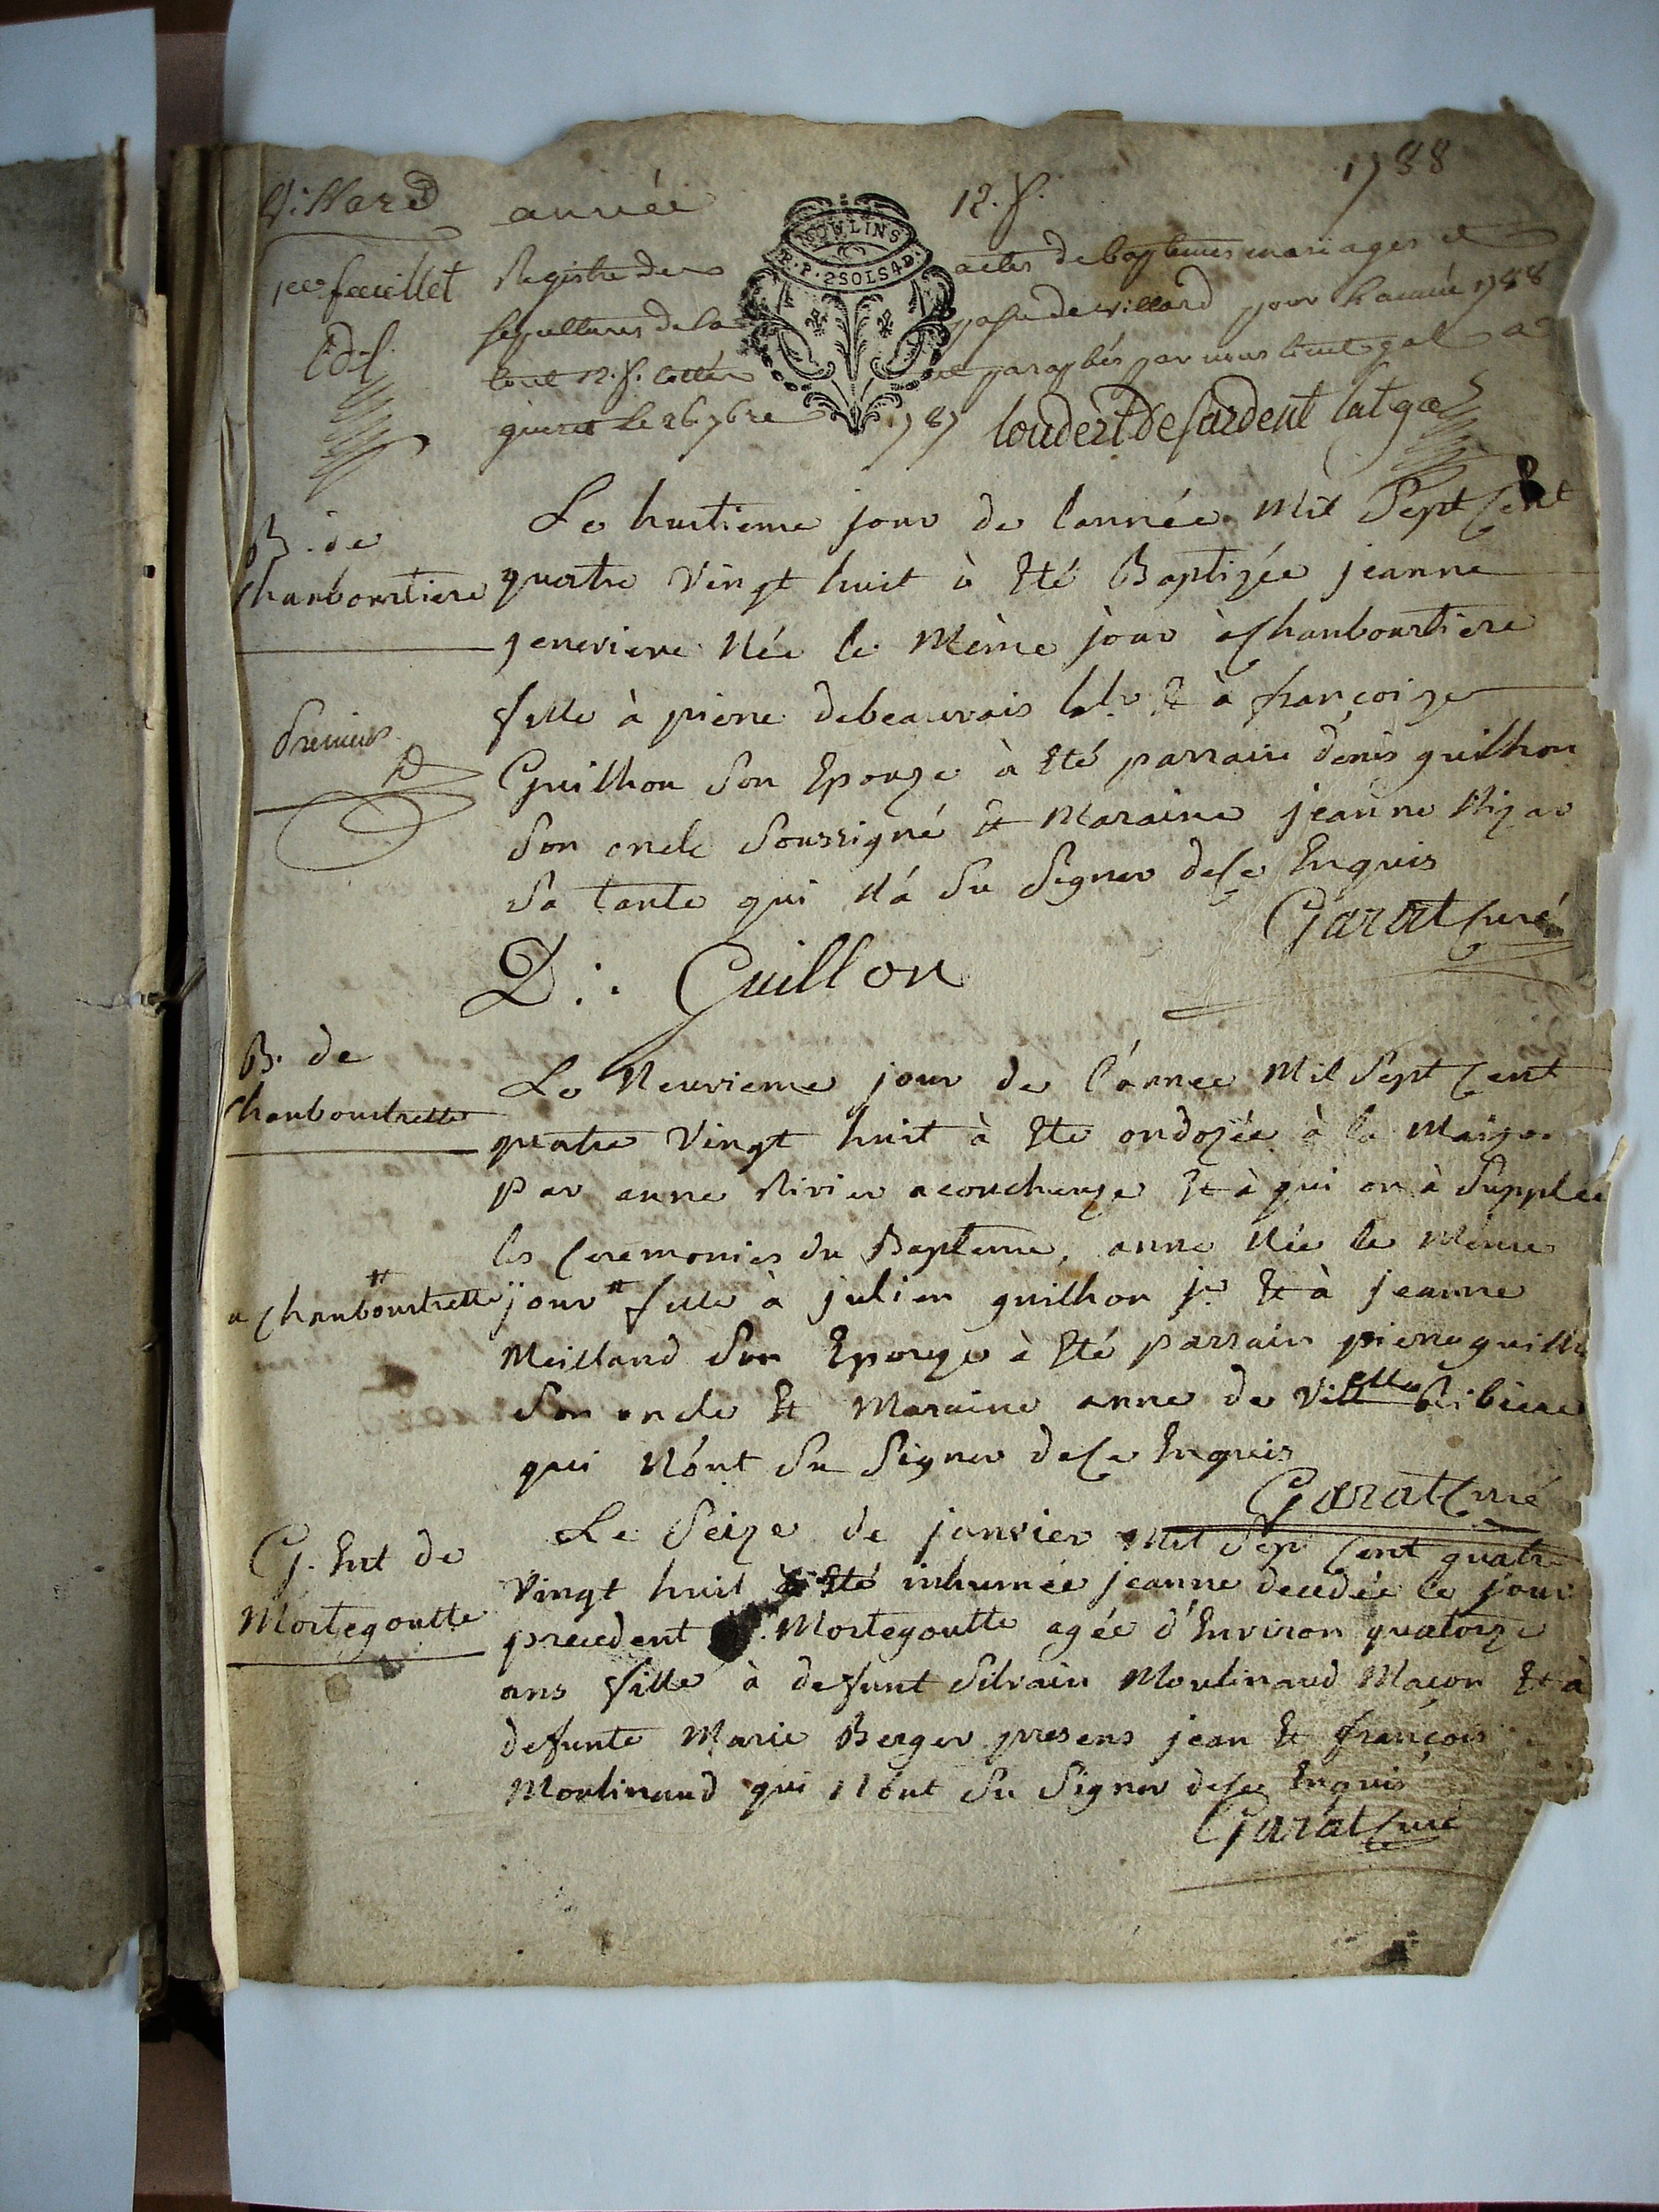 Villard année 12. f. 1788
1er feuillet Registre des actes de baptemes mariages et
sepultures de la psse de villard pour l'année 1788
cont 12. f. cottés et paraphés par nous lieut gal a
gueret le 26 7bre 1787
MOULINS
P. P. 2 SOLS 4 D.
B. de
Chanboartiere
Le huitieme jour de lannée Mil Sept Cent
quatre Vingt huit à Eté Baptizée jeanne
genevieve Née le Mème jour à Chanbourtiere
fille à pierre debeauvais Et à françoize
Premier
Guilhon Son Epouze à Eté parrain denis guilhon
Son oncle Soussigné Et Maraine jeanne
Sa tante qui N'a Su Signer de Ce Enquis
Garat Curé
D. Guillon
B. de
Chanboustrette
Le Neuvieme jour de l'annee Mil Sept Cent
quatre Vingt huit à Ete ondoyée à la Maizon
par anne Rivier acoucheuze Et à qui on à Supplee
les Ceremonies du Bapteme, anne Née le Mème
a Chanboustrette
jour # fille à julien guilhon jr Et à jeanne
Meilland Son Epouze à Eté parrain pierre guilh
Son oncle Et Maraine anne de Ville Ribiere
qui N'ont Su Signer de Ce Enquis
Garat Curé
G. Ent de
Mortegoutte
Le Seize de janvier Mil Sept Cent quatre
Vingt huit à Eté inhumée jeanne decedée le jour
precedent Mortegoutte agée d'Environ quatorze
ans fille à defunt Silvain Moulinaud Maçon Et à
defunte Marie Berger presens jean Et françois
Moulinaud qui N'ont Su Signer de Ce Enquis
Garat Curé